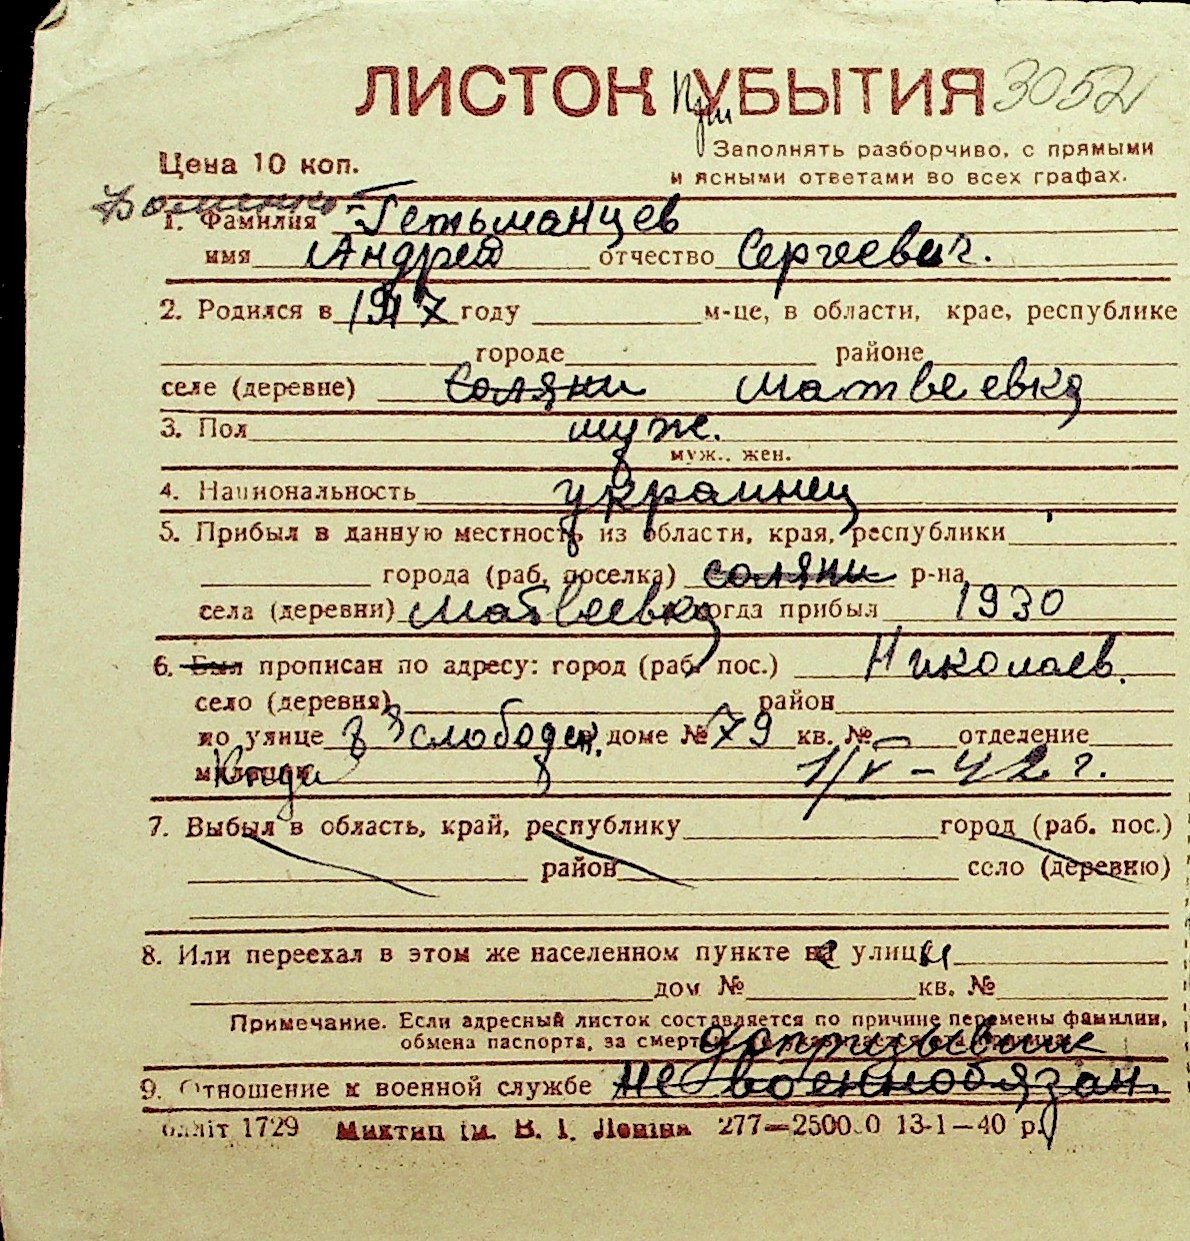 ЛИСТОК При УБЫТИЯ 3052
Цена 10 коп.
Заполнять разборчиво, с прямыми
и ясными ответами во всех графах.
1. Фамилия Гетьманцев
имя Андрей отчество Сергеевич.
2. Родился в 1917 году м-це, в области, крае, республике
городе районе
селе (деревне) Соляни Матвеевка
3. Пол муж.
муж., жен.
4. Национальность украинец
5. Прибыл в данную местность из области, края, республики
города (раб. поселка) соляни р-на
села (деревни) Матвеевка когда прибыл 1930
6. Был прописан по адресу: город (раб. пос.) Николаев.
село (деревня) район
по улице 3 слободск. в доме № 79 кв. № отделение
милиции 1/V-42 г.
7. Выбыл в область, край, республику город (раб. пос.)
район село (деревню)
8. Или переехал в этом же населенном пункте на улицы
дом № кв. №
Примечание. Если адресный листок составляется по причине перемены фамилии,
обмена паспорта, за смертью
допризывник
9. Отношение к военной службе не военнообязан.
1729 Миктип ім. В. І. Леніна 277—25000 13-1—40 р.